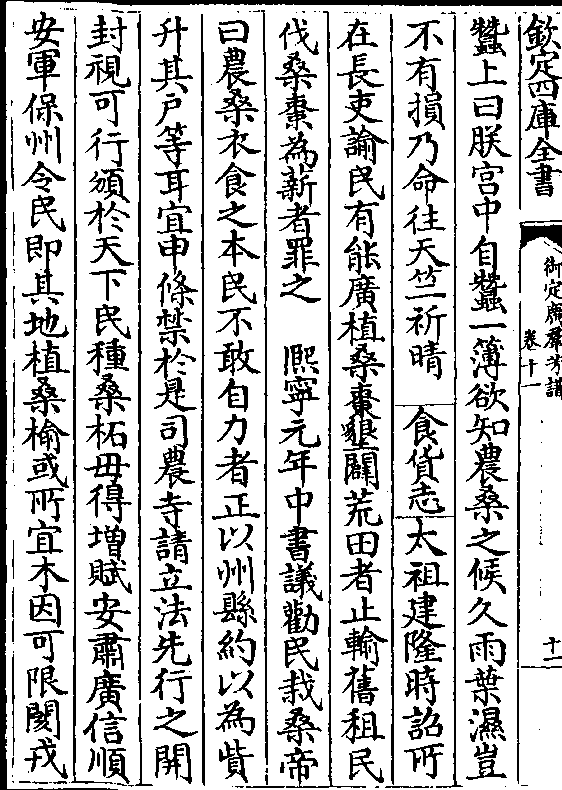 欽定四庫全書
御定廣羣芳譜
卷十一
十一
蠶上曰朕宮中自蠶一簿欲知農桑之候久雨葉濕豈
不有損乃命往天竺祈晴 食貨志太祖建隆時詔所
在長吏諭民有能廣植桑棗墾闢荒田者止輸舊租民
伐桑棗為薪者罪之 熙寧元年中書議勸民栽桑帝
曰農桑衣食之本民不敢自力者正以州縣約以為貲
升其户等耳宜申條禁於是司農寺請立法先行之開
封視可行頒於天下民種桑柘毋得增賦安肅廣信順
安軍保州令民即其地植桑榆或所宜木因可限閡戎